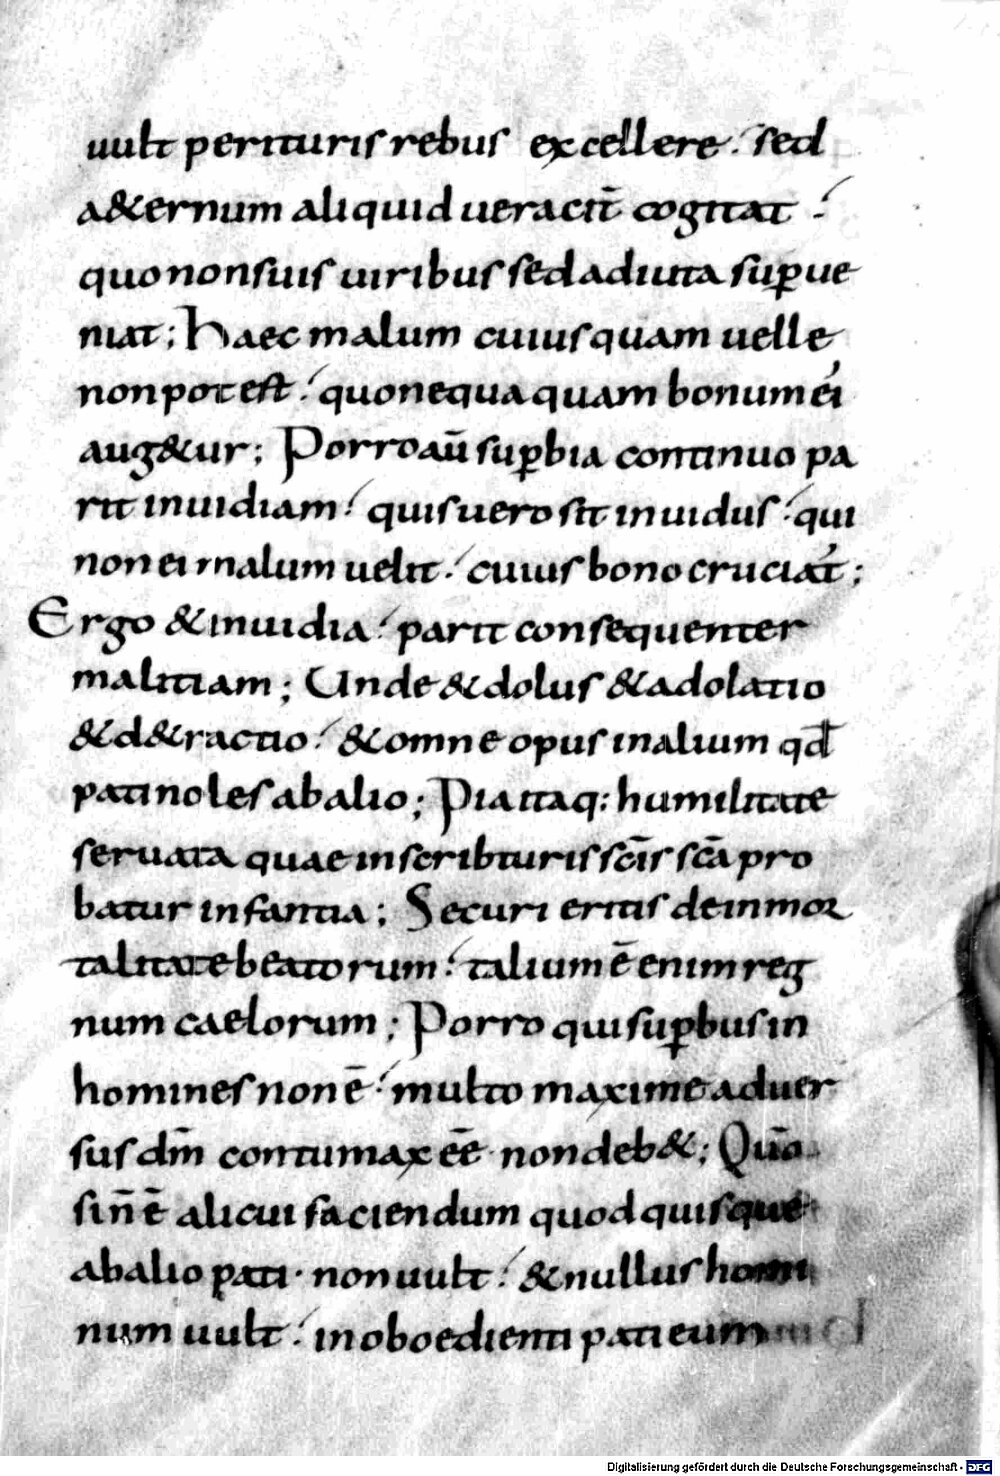 uult perituris rebus excellere. sed
a&ernum aliquid ueracit̄ cogitat.
quo non suis uiribus sed adiuta sup̱ue
niat; Haec malum cuiusquam uelle
non potest. quo nequaquam bonum ei
aug&ur; Porro aū sup̱bia continuo pa
rit inuidiam. quis uero sit inuidus. qui
non ei malum uelit. cuius bono cruciat̄;
Ergo & inuidia. parit consequenter
malitiam; Unde & dolus & adolatio
& d&ractio. & omne opus in alium qđ
pati noles ab alio; Pia itaq: humilitate
seruata quae in scribturis scīs scā pro
batur infantia; Securi eritis de inmor
talitate beatorum. talium ē enim reg
num caelorum; Porro qui sup̱bus in
homines non ē. multo maxime aduer
sus dm̄ contumax eē non deb&; Quō
si n̄ ē alicui faciendum quod quisque
ab alio pati· non uult. & nullus homi
num uult. inoboedienti pati eum
Digitalisierung gefördert durch die Deutsche Forschungsgemeinschaft - DFG